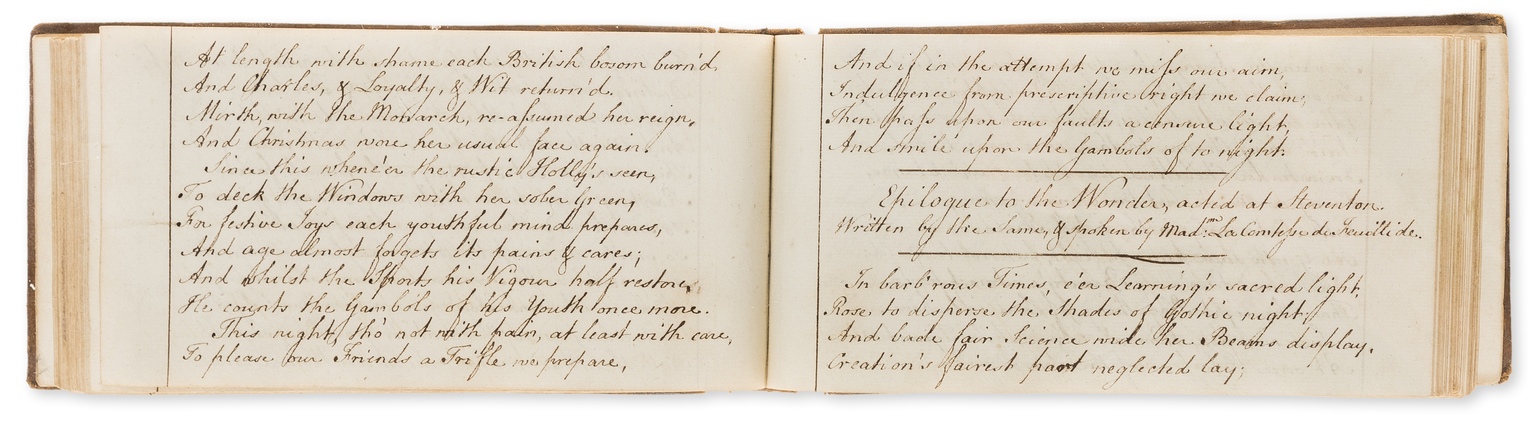 At length with shame each British bosom burn'd,
And Charles, & Loyalty, & Wit return'd.
Mirth, with the Monarch, re-assumed her reign,
And Christmas wore her usual face again.
Since this whene'er the rustic Holly's seen,
To deck the Windows with her sober Green,
For festive Joys each youthful mind prepares,
And age almost forgets its pains & cares;
And whilst the Sports his Vigour half restore,
He counts the Gambols of his Youth once more.
This night, tho' not with pain, at least with care,
To please our Friends a Trifle we prepare,
And if in the attempt we miss our aim,
Indulgence from prescriptive right we claim;
Then pass upon our faults a censure light,
And smile upon the Gambols of to night.
Epilogue to the Wonder, acted at Steventon.
Written by the Same, & spoken by Mad:me La Comtesse de Feuillide.
In barb'rous Times, e'er Learning's sacred light,
Rose to disperse the Shades of Gothic night,
And bade fair Science wide her Beams display,
Creation's fairest part neglected lay;